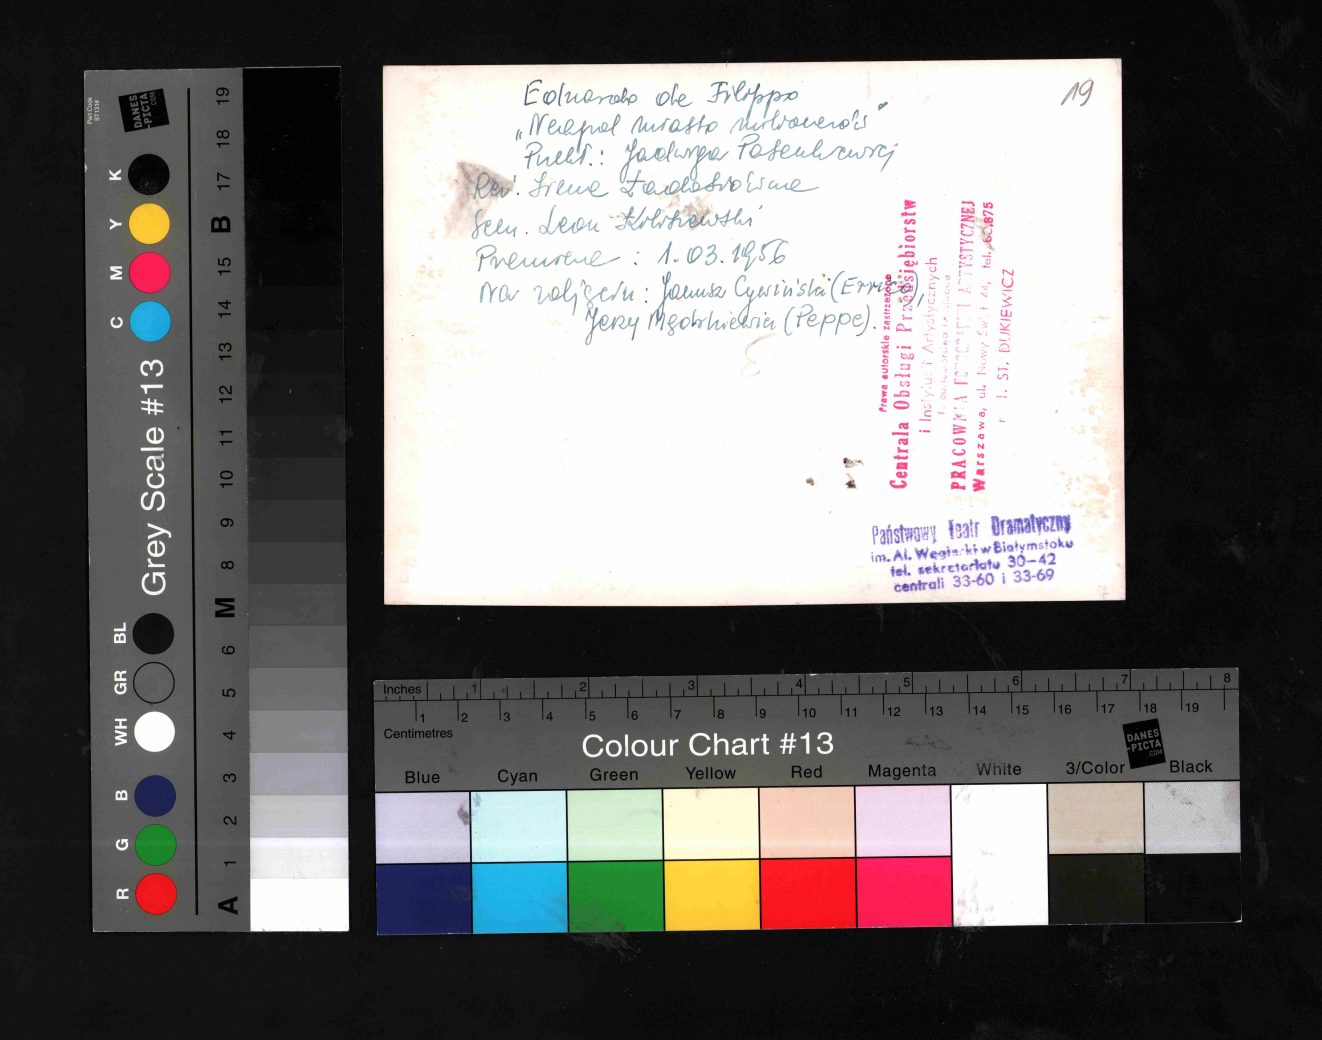 19
Eduardo de Filippo
„Neapol miasto milionerów"
Przekł.: Jadwiga Pasenkiewicz
Reż. Irena Ładosiówna
Scen. Leon
Premiera : 1.03.1956
Na zdjęciu: Janusz Cywiński (Errico),
Jerzy (Peppe).
Prawa autorskie zastrzeżone
Centrala Obsługi Przedsiębiorstw
i Instytucji Artystycznych
PRACOWNIA FOTOGRAFII ARTYSTYCZNEJ
Warszawa, ul. Nowy Świat 44, tel.
ST. DUKIEWICZ
Państwowy Teatr Dramatyczny
im. Al. Węgierki w Białymstoku
tel. sekretariatu 30-42
centrali 33-60 i 33-69
Part Code
ST1316
DANES
-PICTA
.COM
Grey Scale #13
K Y M C BL GR WH B G R
19 18 17 B 15 14 13 12 11 10 9 8 M 6 5 4 3 2 1 A
Inches 1 2 3 4 5 6 7 8
1 2 3 4 5 6 7 8 9 10 11 12 13 14 15 16 17 18 19
Centimetres
Colour Chart #13
DANES
-PICTA
.COM
Blue Cyan Green Yellow Red Magenta White 3/Color Black